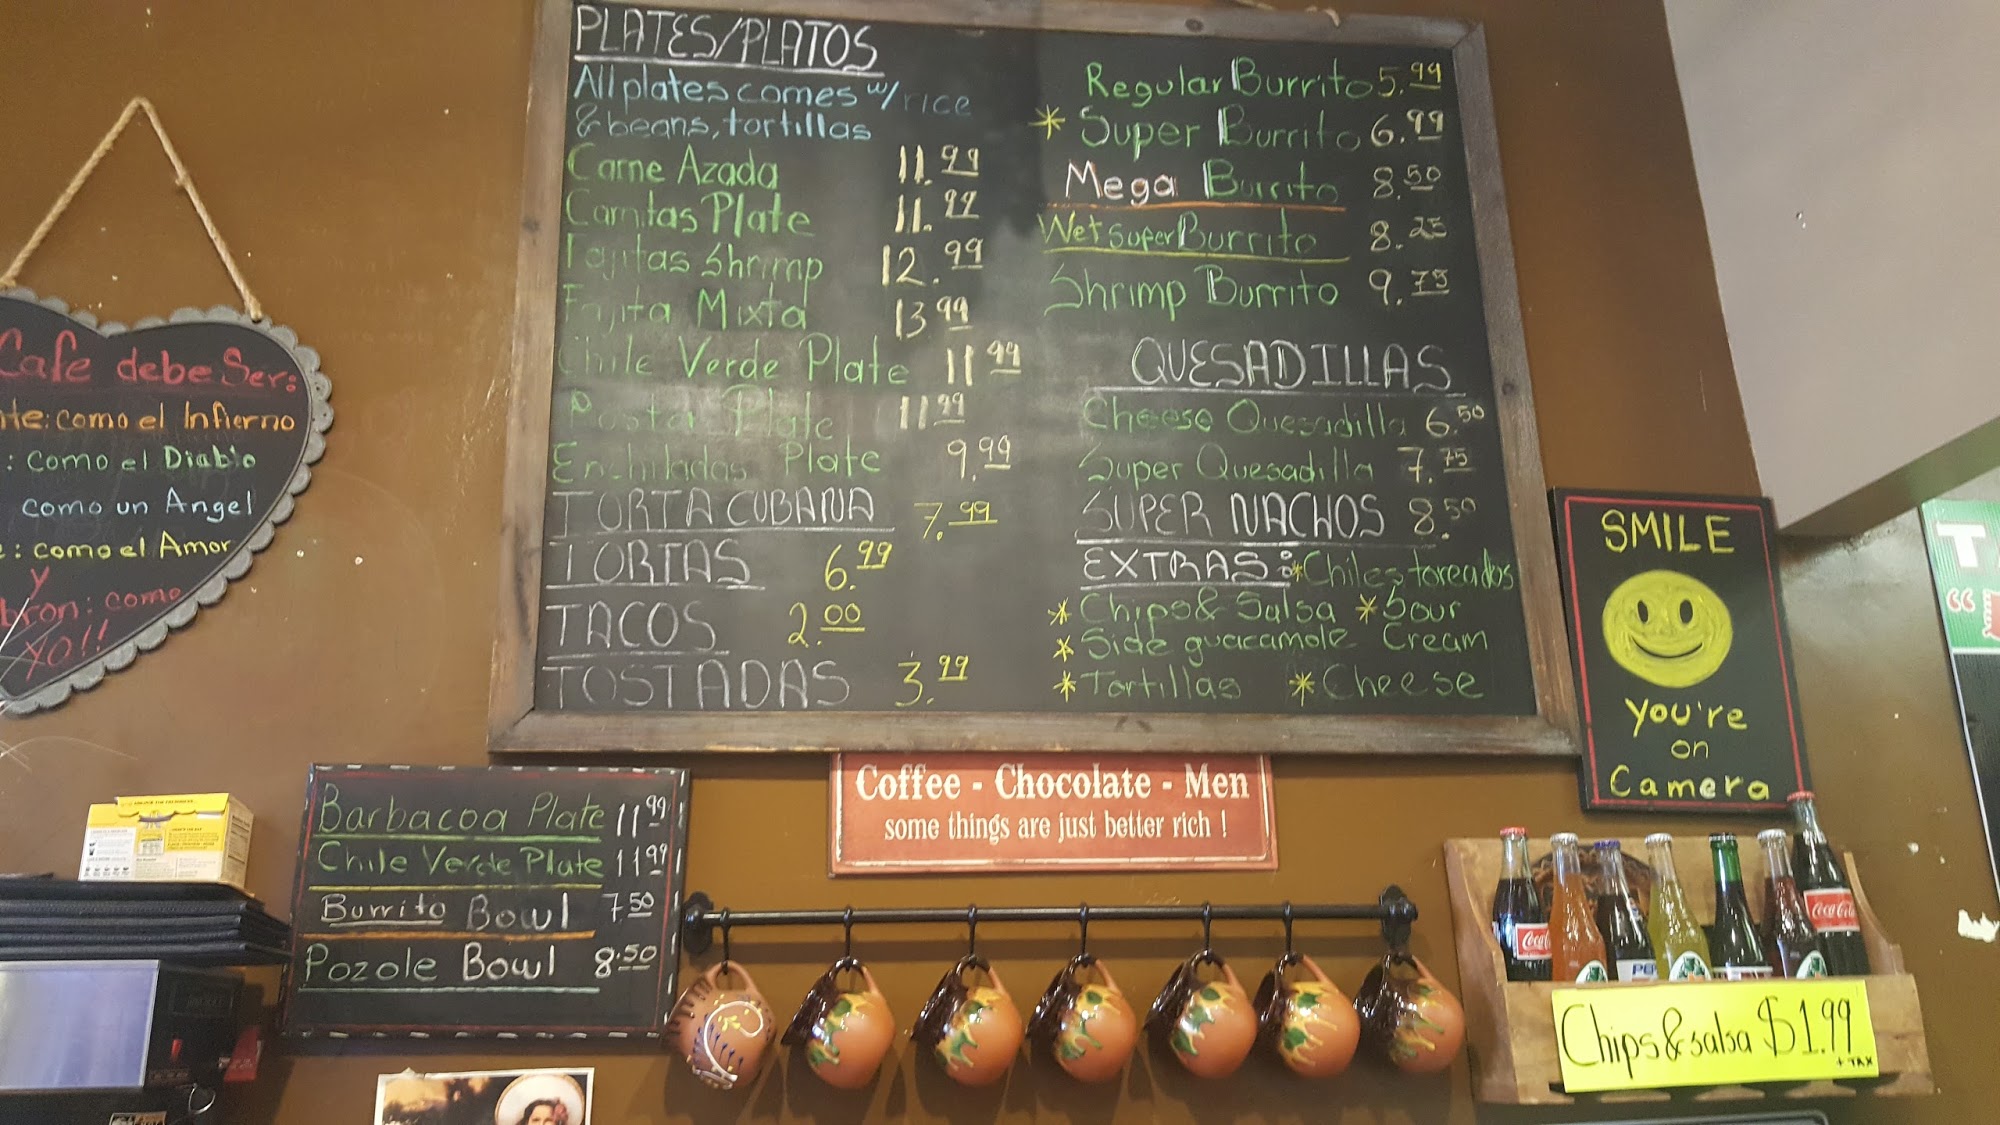 PLATES/PLATOS
All plates comes w/ rice
& beans, tortillas
Carne Azada 11.99
Carnitas Plate 11.99
Fajitas Shrimp 12.99
Fajita Mixta 13 99
Chile Verde Plate 11 99
Pastor Plate 11 99
Enchiladas Plate 9.99
TORTA CUBANA 7.99
TORTAS 6.99
TACOS 2.00
TOSTADAS 3.99
Regular Burrito 5.99
* Super Burrito 6.99
Mega Burrito 8.50
Wet super Burrito 8.25
Shrimp Burrito 9.75
QUESADILLAS
Cheese Quesadilla 6.50
Super Quesadilla 7.75
SUPER NACHOS 8.50
EXTRAS: *Chiles toreados
* Chips & Salsa * Sour
* Side guacamole Cream
* Tortillas * Cheese
Cafe debe Ser:
como el Infierno
: como el Diablo
como un Angel
: como el Amor
y
bron: como
yo!!
SMILE
you're
on
Camera
Barbacoa Plate 11 99
Chile Verde Plate 11 99
Burrito Bowl 7.50
Pozole Bowl 8.50
Coffee - Chocolate - Men
some things are just better rich !
Coca-Cola
Coca-Cola
Chips & salsa $1.99
+ TAX